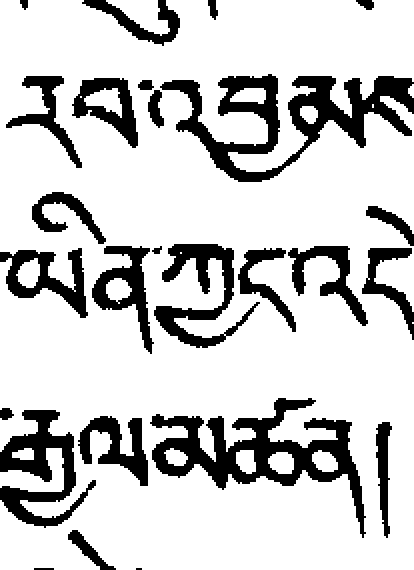 རབ་འབྱམས
ཡིན་ཀྱང་
རྒྱལ་མཚན༎